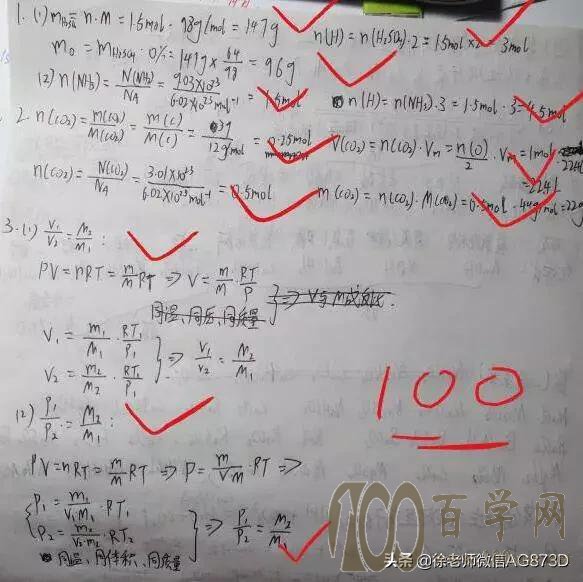 1. (1) m H₂SO₄ = n·M = 1.5mol · 98g/mol = 147g n(H) = n(H₂SO₄)·2 = 1.5mol×2 = 3mol
m O = m H₂SO₄ · O% = 147g × 64/98 = 96g
(2) n(NH₃) = N(NH₃)/NA = 9.03×10²³/6.02×10²³mol⁻¹ = 1.5mol n(H) = n(NH₃)·3 = 1.5mol·3 = 4.5mol
2. n(CO₂) = m(CO₂)/M(CO₂) = m(C)/M(C) = 3g/12g/mol = 0.25mol V(CO₂) = n(CO₂)·Vm = n(O)/2 · Vm = 1mol
= 22.4L
n(CO₂) = N(CO₂)/NA = 3.01×10²³/6.02×10²³mol⁻¹ = 0.5mol m(CO₂) = n(CO₂)·M(CO₂) = 0.5mol·44g/mol = 22g
3. (1) V₁/V₂ = M₂/M₁ :
PV = nRT = m/M RT ⇒ V = m/M · RT/P
同温、同压、同质量 ⇒ V与M成反比.
V₁ = m₁/M₁ · RT₁/P₁
⇒ V₁/V₂ = M₂/M₁
V₂ = m₂/M₂ · RT₁/P₁
(2) P₁/P₂ = M₂/M₁ :
PV = nRT = m/M RT ⇒ P = m/VM · RT ⇒
P₁ = m₁/V₁M₁ · RT₁
⇒ P₁/P₂ = M₂/M
P₂ = m₂/V₂M₂ · RT₂
同温、同体积、同质量
100
100百学网
头条 @徐老师微信AG873D